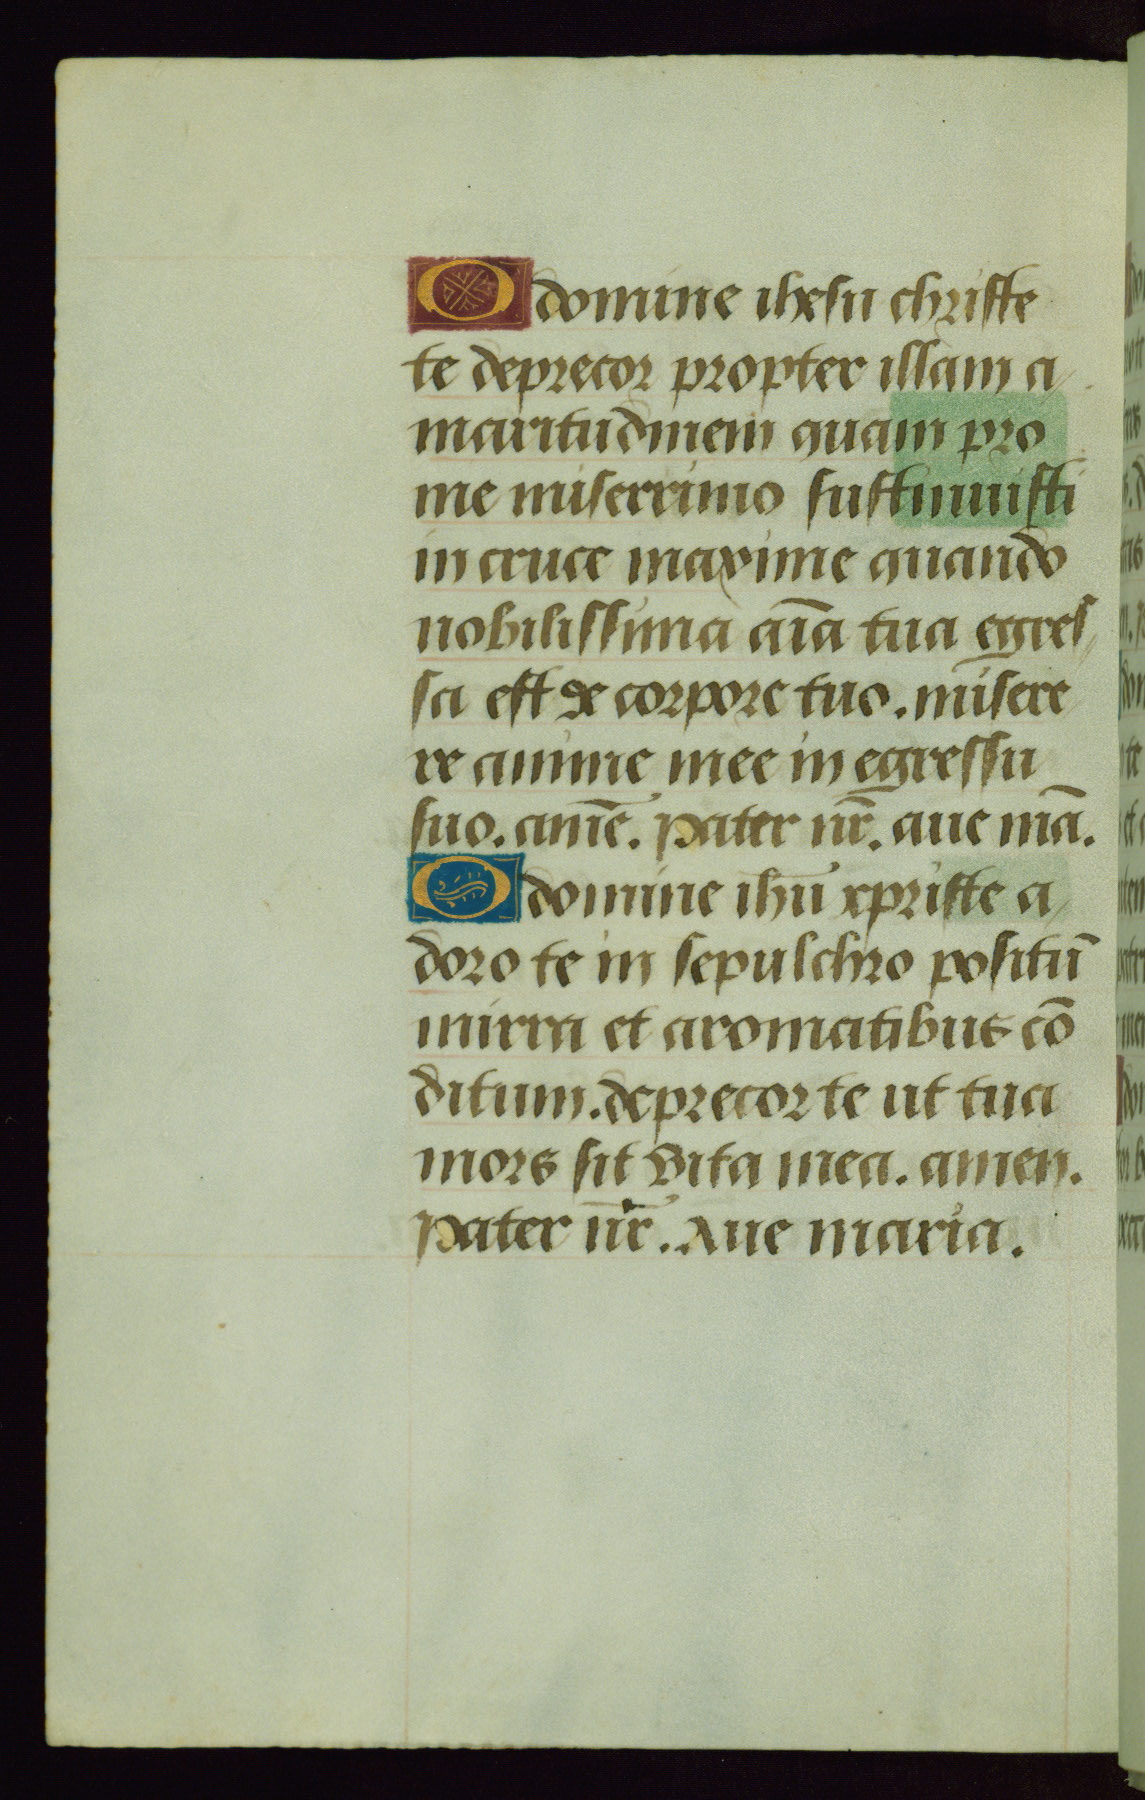 O domine ihesu christe
te deprecor propter illam a
maritudinem quam pro
me miserrimo sustinuisti
in cruce maxime quando
nobilissima aīa tua egres
sa est de corpore tuo. misere
re anime mee in egressu
suo. amē. Pater nr̄. aue mā.
O domine ihū xpriste a
doro te in sepulchro positū
mirra et aromatibus cō
ditum. deprecor te ut tua
mors sit vita mea. amen.
Pater nr̄. Aue maria.